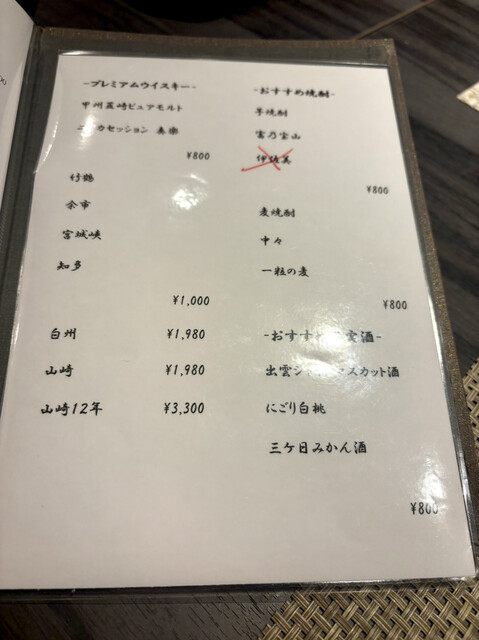 -プレミアムウイスキー-
甲州韮崎ピュアモルト
セッション 奏樂
¥800
竹鶴
余市
宮城峡
知多
¥1,000
白州 ¥1,980
山崎 ¥1,980
山崎12年 ¥3,300
-おすすめ焼酎-
芋焼酎
富乃宝山
伊佐美
¥800
麦焼酎
中々
一粒の麦
¥800
-おすす 酒-
出雲シ スカット酒
にごり白桃
三ケ日みかん酒
¥800